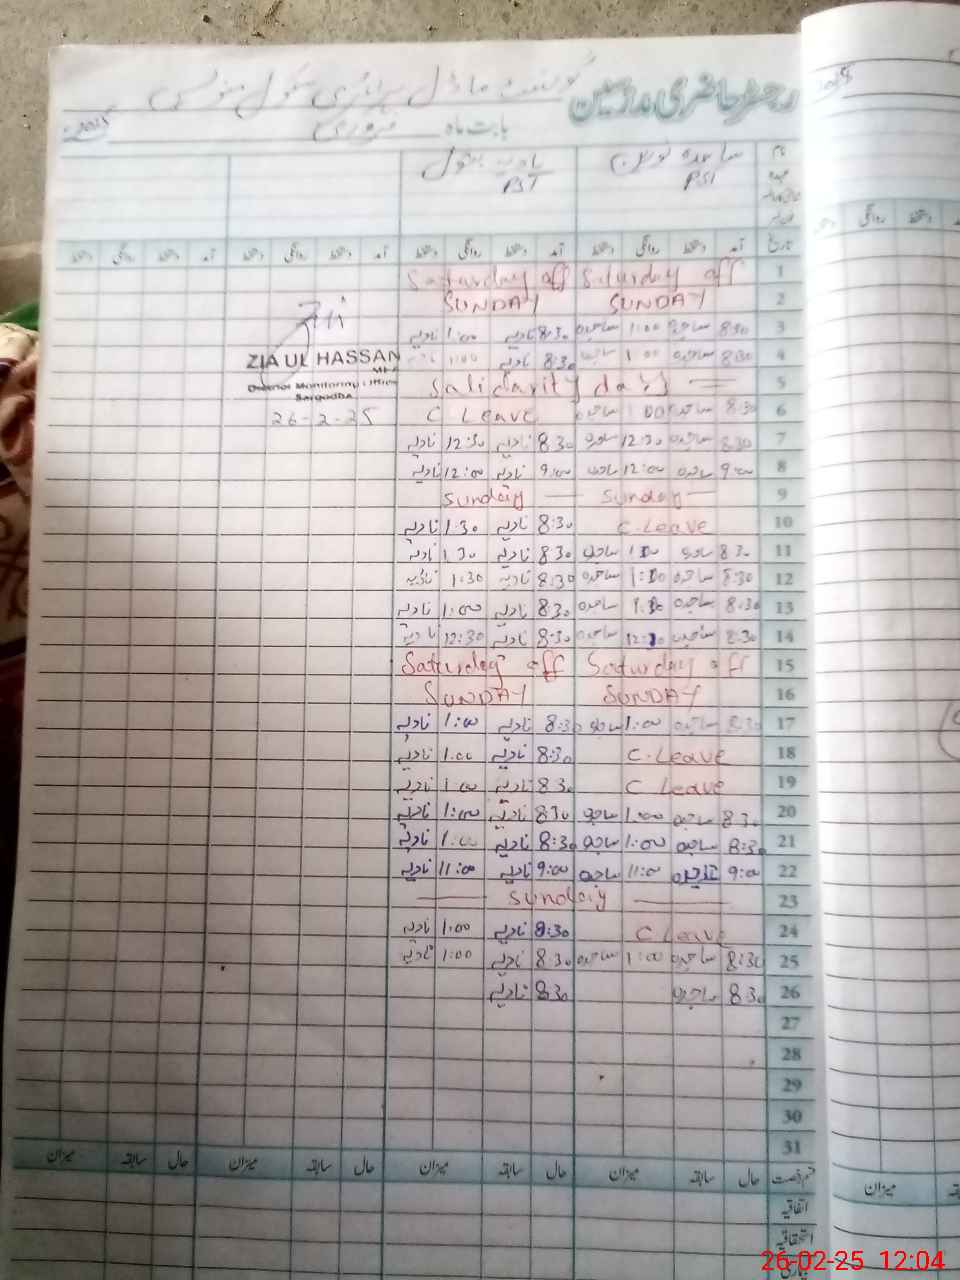 رجسٹر حاضری ملازمین گورنمنٹ ماڈل پرائمری سکول
بابت ماہ فروری 2025
نام ساجدہ نورین نادیہ بتول
عہدہ PST PST
تاریخ آمد دستخط روانگی دستخط آمد دستخط روانگی دستخط آمد دستخط روانگی دستخط آمد دستخط روانگی دستخط
1 Saturday off Saturday off
2 SUNDAY SUNDAY
3 8:30 ساجدہ 1:00 ساجدہ 8:30 نادیہ 1:00 نادیہ
4 8:30 ساجدہ 1:00 ساجدہ 8:30 نادیہ 1:00 نادیہ
ZIA UL HASSAN
MEA
District Monitoring Officer
Sargodha
26-2-25
5 Salidarity day
6 8:30 ساجدہ 1:00 ساجدہ C Leave
7 8:30 ساجدہ 12:30 ساجدہ 8:30 نادیہ 12:30 نادیہ
8 9:00 ساجدہ 12:00 ساجدہ 9:00 نادیہ 12:00 نادیہ
9 Sunday Sunday
10 C.Leave 8:30 نادیہ 1:30 نادیہ
11 8:30 ساجدہ ساجدہ 8:30 نادیہ 1:30 نادیہ
12 8:30 ساجدہ ساجدہ 8:30 نادیہ 1:30 نادیہ
13 8:30 ساجدہ ساجدہ 8:30 نادیہ 1:00 نادیہ
14 8:30 ساجدہ ساجدہ 8:30 نادیہ 12:30 نادیہ
15 Saturday off Saturday off
16 SUNDAY SUNDAY
17 8:30 ساجدہ 1:00 ساجدہ 8:30 نادیہ 1:00 نادیہ
18 C.Leave 8:30 نادیہ 1:00 نادیہ
19 C Leave 8:30 نادیہ 1:00 نادیہ
20 8:30 ساجدہ 1:00 ساجدہ 8:30 نادیہ 1:00 نادیہ
21 8:30 ساجدہ 1:00 ساجدہ 8:30 نادیہ 1:00 نادیہ
22 9:00 ساجدہ 11:00 ساجدہ 9:00 نادیہ 11:00 نادیہ
23 Sunday
24 C.Leave 8:30 نادیہ 1:00 نادیہ
25 8:30 ساجدہ 1:00 ساجدہ 8:30 نادیہ 1:00 نادیہ
26 8:30 ساجدہ 8:30 نادیہ
27
28
29
30
31
قسم رخصت حال سابقہ میزان حال سابقہ میزان حال سابقہ میزان حال سابقہ میزان
اتفاقیہ
استحقاقیہ
بیماری
میزان
26-02-25 12:04